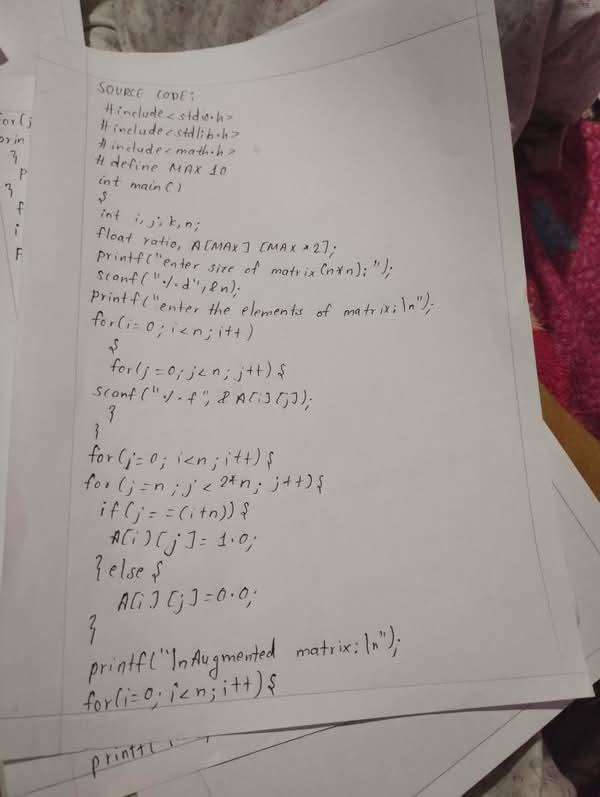 for(j
prin
}
p
}
f
i
F
SOURCE CODE:
#include<stdio.h>
#include<stdlib.h>
#include<math.h>
#define MAX 10
int main()
{
int i,j,k,n;
float ratio, A[MAX][MAX*2];
printf("enter size of matrix(n*n):");
scanf("%d",&n);
printf("enter the elements of matrix:\n");
for(i=0;i<n;i++)
{
for(j=0;j<n;j++){
scanf("%f",&A[i][j]);
}
}
for(j=0;i<n;i++){
for(j=n;j<2*n;j++){
if(j==(i+n)){
A[i][j]=1.0;
}else{
A[i][j]=0.0;
}
printf("\nAugmented matrix:\n");
for(i=0;i<n;i++){
printf(